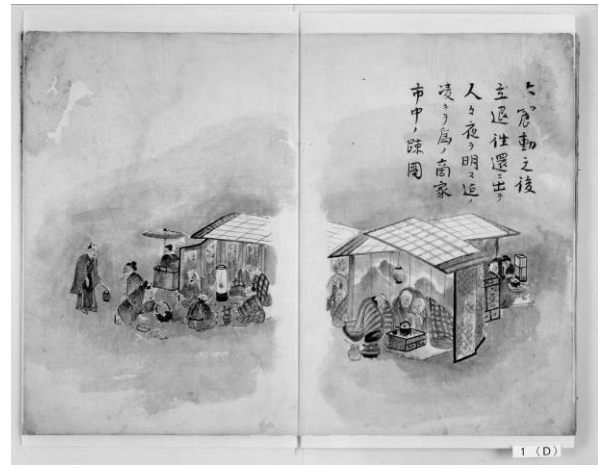 大震動之後
立退往還ニ出テ
人々夜ヲ明ス迠ノ
凌キヲ為ノ商家
市中ノ踈圖
1 (D)